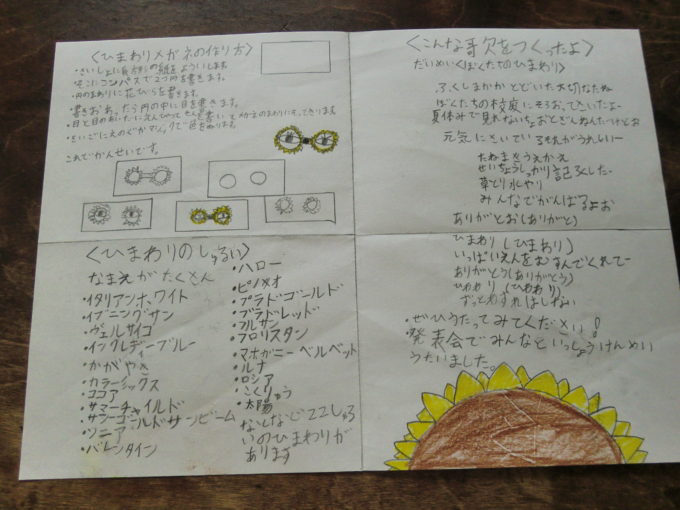 〈ひまわりメガネの作り方〉
・さいしょに長方形の紙をよういします。
・そこにコンパスで2つ円を書きます。
・円のまわりに花びらを書きます。
・書きおわったら円の中に目を書きます。
・目と目のあいだに
を書いて
メガネのまわりにそってきります
・さいごに
色をぬります。
これでかんせいです。
〈ひまわりのしゅるい〉
なまえがたくさん
・イタリアンホワイト
・イブニングサン
・ヴェルサイユ
・インクレディーブルー
・かがやき
・カラーミックス
・ココア
・サマーチャイルド
・サンゴールドサンビーム
・ソニア
・バレンタイン
・ハロー
・ピノメオ
・プラドゴールド
・プラドレッド
・フルサン
・フロリスタン
・マホガニーベルベット
・ルナ
・ロシア
・こくりゅう
・太陽
などなど22しゅる
いのひまわりが
あります
〈こんな歌をつくったよ〉
だいめい〈ぼくたちのひまわり〉
ふくしまからとどいた大切なたね
ぼくたちの校庭にそらおっきいなー
夏休みで見れないちょおとざんねんだけどお
元気にさいているそれがうれしいー
たねまきうえかえ
せいちょうしっかり記ろくした
草とり水やり
みんなでがんばるよお
ありがとお(ありがとう)
ひまわり(ひまわり)
いっぱいえんをむすんでくれてー
ありがとう(ありがとう)
ひまわり(ひまわり)
ずっとわすれはしない
・ぜひうたってみてください!
・発表会でみんなといっしょうけんめい
うたいました。